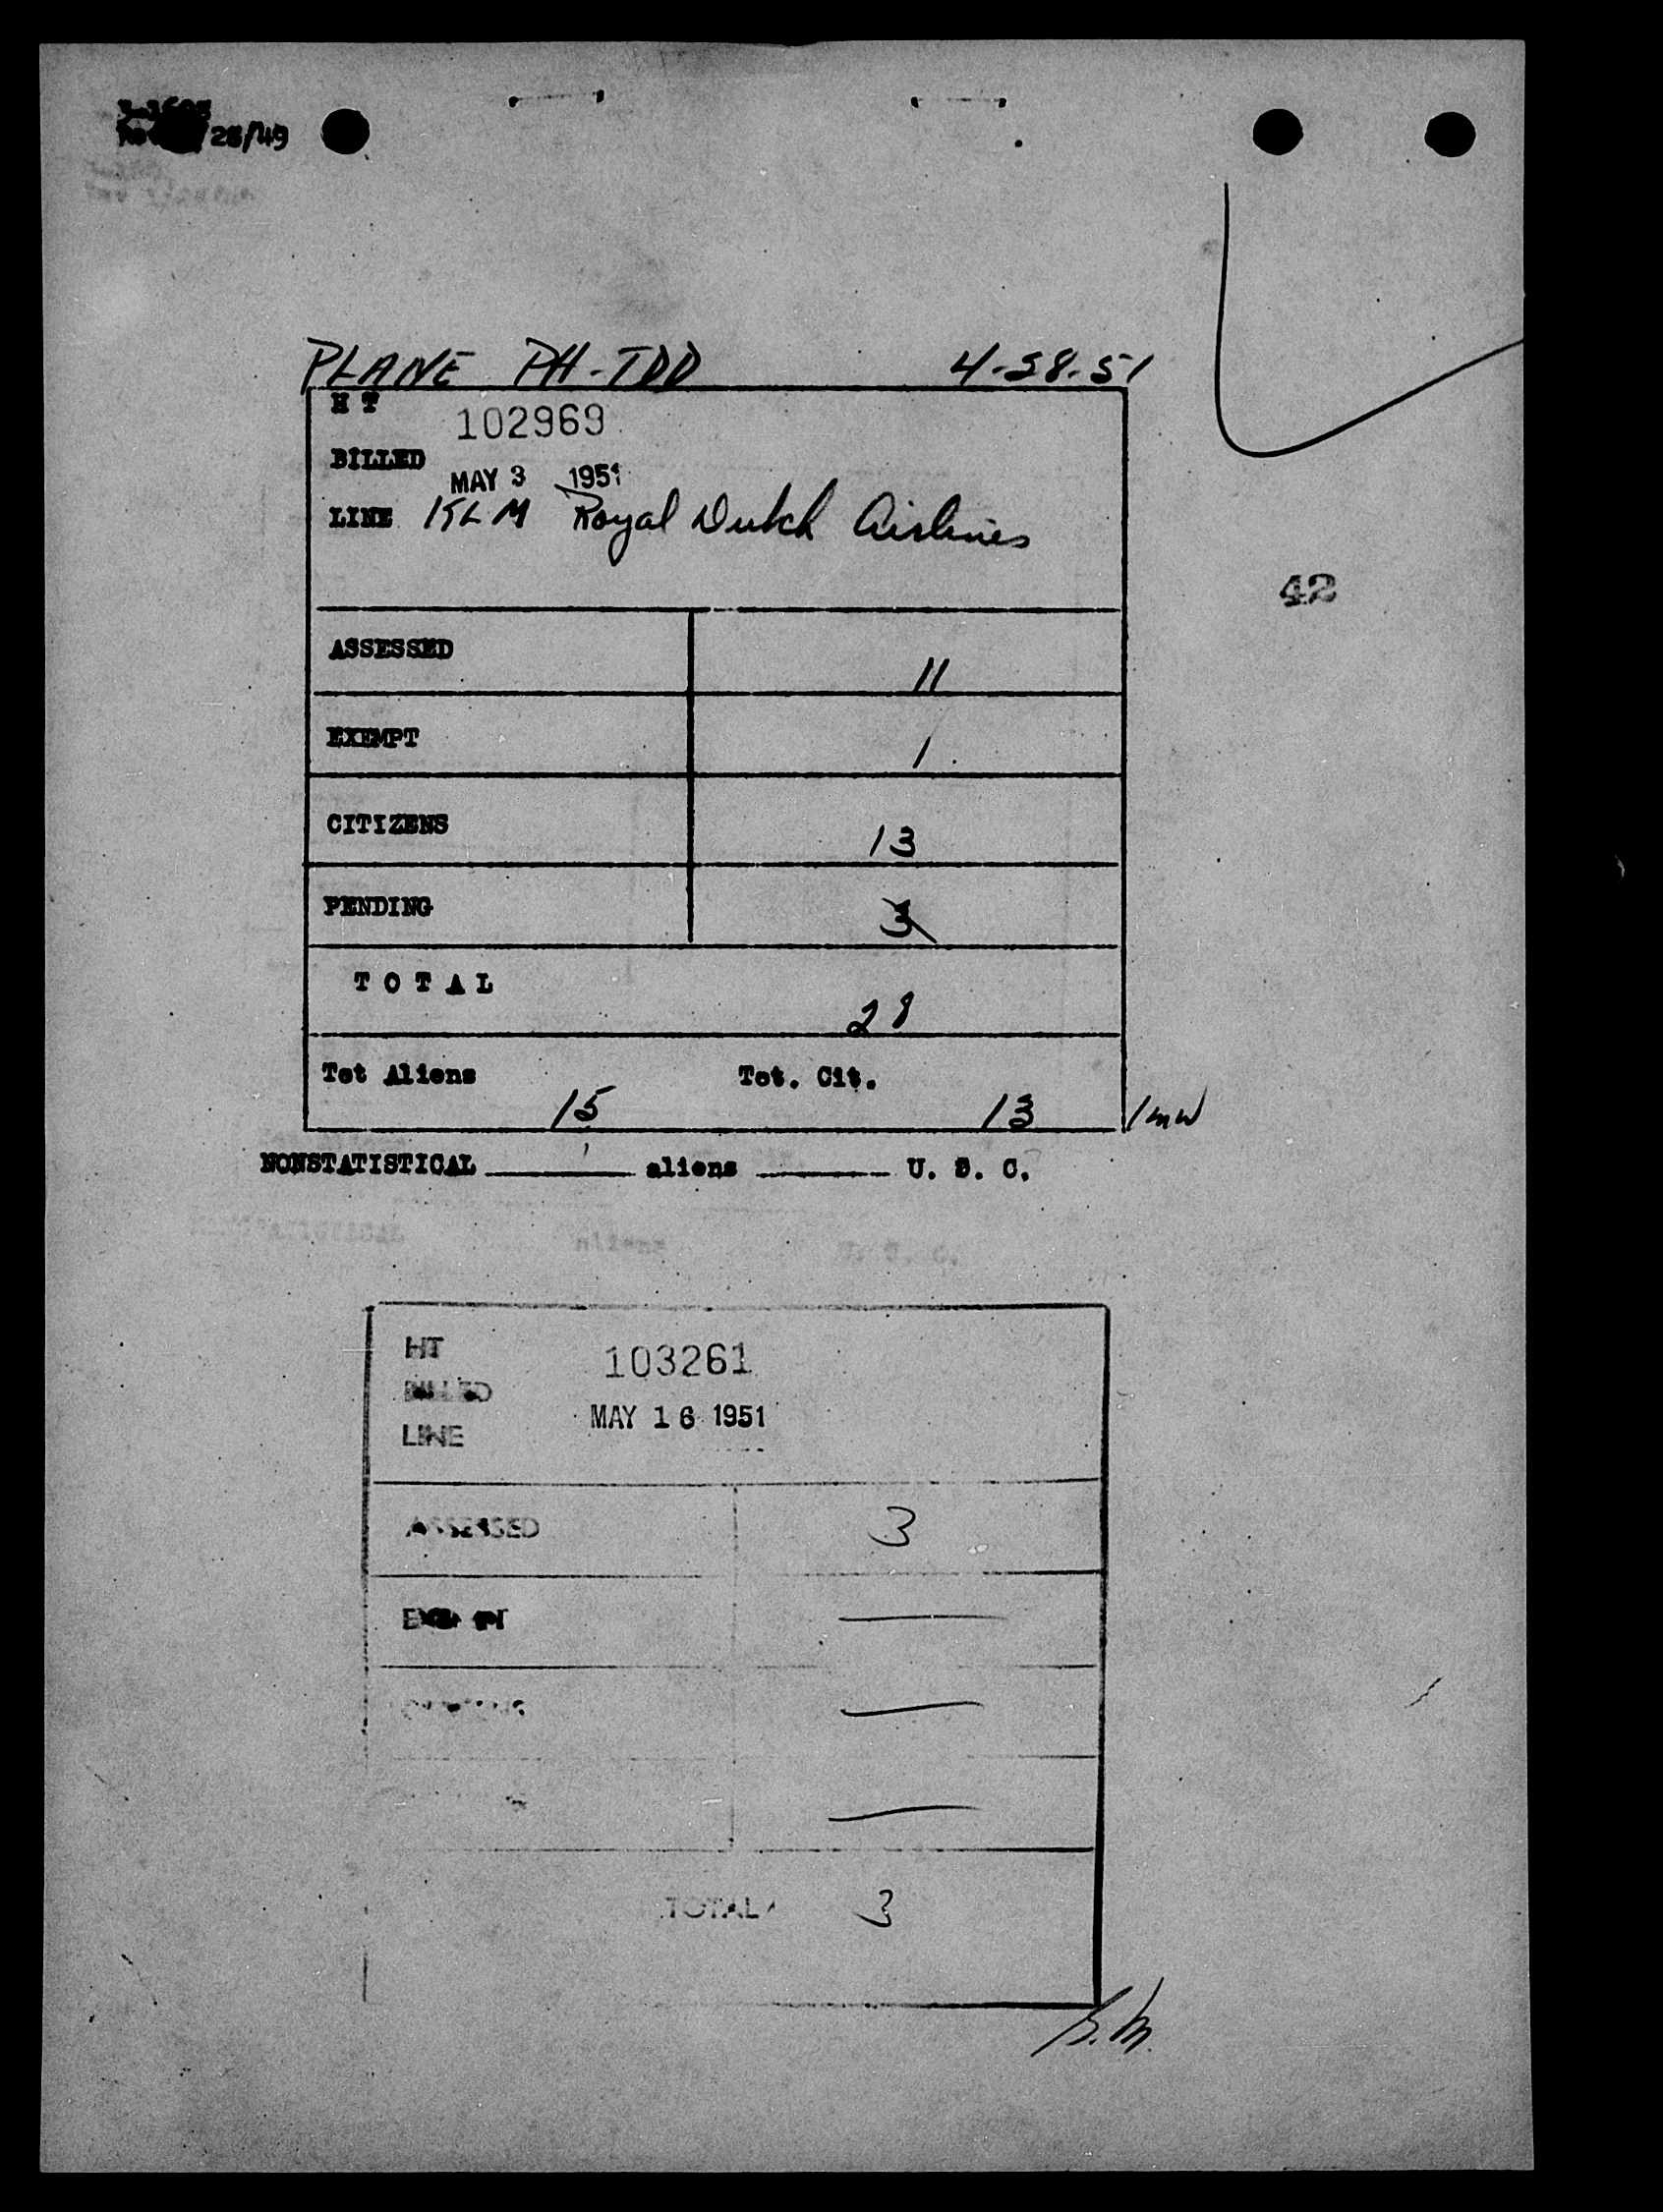 28/49
PLANE PH-TDD 4-28-51
H T 102969
BILLED
MAY 3 1951
LINE KLM Royal Dutch Airlines
42
ASSESSED 11
EXEMPT 1
CITIZENS 13
PENDING 3
TOTAL 28
Tot Aliens 15 Tot. Cit. 13 /mw
NONSTATISTICAL aliens U. S. C.
NONSTATISTICAL aliens U. S. C.
HT 103261
BILLED
MAY 16 1951
LINE
ASSESSED 3
EXEMPT —
—
—
TOTAL 3